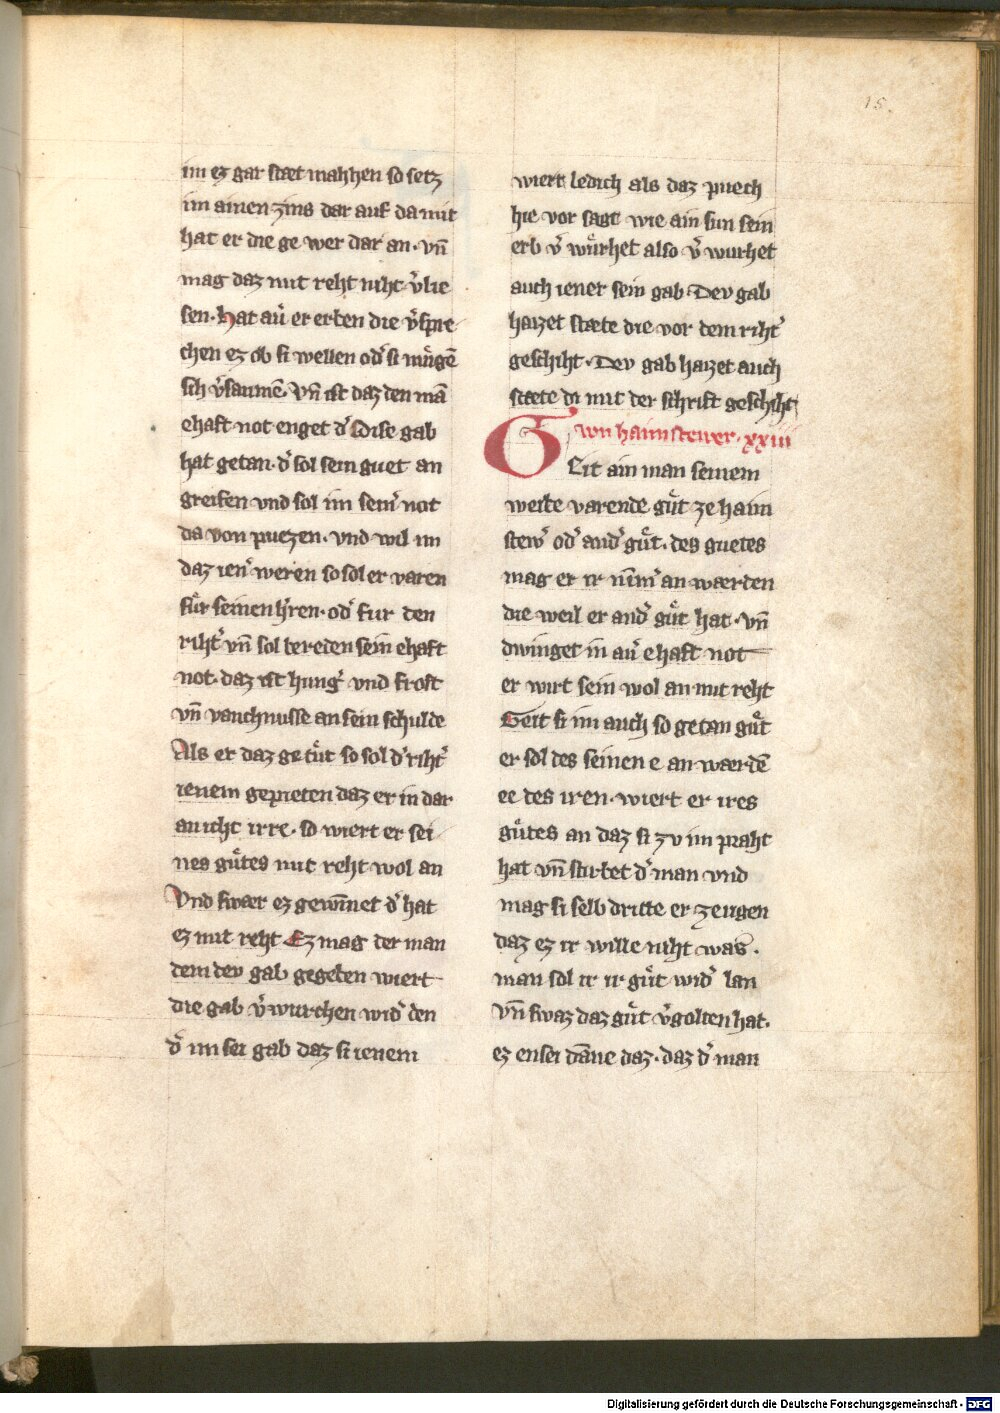 15.
im ez gar stæt mahhen so setz
im ainen zins dar auf da mit
hat er die ge wer dar an. vn̄
mag daz mit reht niht v̓lie
sen. Hat au̓ er erben die v̓spre
chen ez ob si wellen od̓ si mu̓gē
sich v̓saumē. Vn̄ ist daz den mā
ehaft not enget d̓ dise gab
hat getan. d̓ sol sein guet an
greifen vnd sol im sein̓ not
da von puezen. vnd wil im
daz ien̓ weren so sol er varen
fu̓r seinen h̓ren. od̓ fur den
riht̓ vn̄ sol bereden sein ehaft
not. daz ist hung̓ vnd frost
vn̄ vanchnusse an sein schulde
Als er daz getu̓t so sol d̓ riht̓
ienem gepieten daz er in dar
an icht irre. so wiert er sei
nes gu̓tes mit reht wol an
Vnd swær ez gewin̄net d̓ hat
ez mit reht Ez mag der man
dem dev gab gegeben wiert
die gab v̓wurchen wid̓ den
d̓ im sei gab daz si ienem
wiert ledich als daz puech
hie vor sagt wie ain sun sein
erb v̓ wu̓rhet also v̓ wurhet
auch iener sein gab. Dev gab
haizet stæte die vor dem riht̓
geschiht. Dev gab haizet auch
stæte di mit der schrift geschiht
von haimstewer. xxiiii
Geit ain man seinem
weibe varende gu̓t ze haim
stew̓ od̓ and̓ gu̓t. des guetes
mag er ir nim̄̓ an wærden
die weil er and̓ gu̓t hat. vn̄
dwinget in au̓ ehaft not
er wirt sein wol an mit reht
Geit si im auch so getan gu̓t
er sol des seinen e an wærdē
ee des iren. wiert er ires
gu̓tes an daz si zv im praht
hat vn̄ stirbet d̓ man vnd
mag si selb dritte er zeugen
daz ez ir wille niht was.
man sol ir ir gu̓t wid̓ lan
Vn̄ swaz daz gu̓t v̓golten hat.
ez ensei dāne daz. daz d̓ man
Digitalisierung gefördert durch die Deutsche Forschungsgemeinschaft - DFG